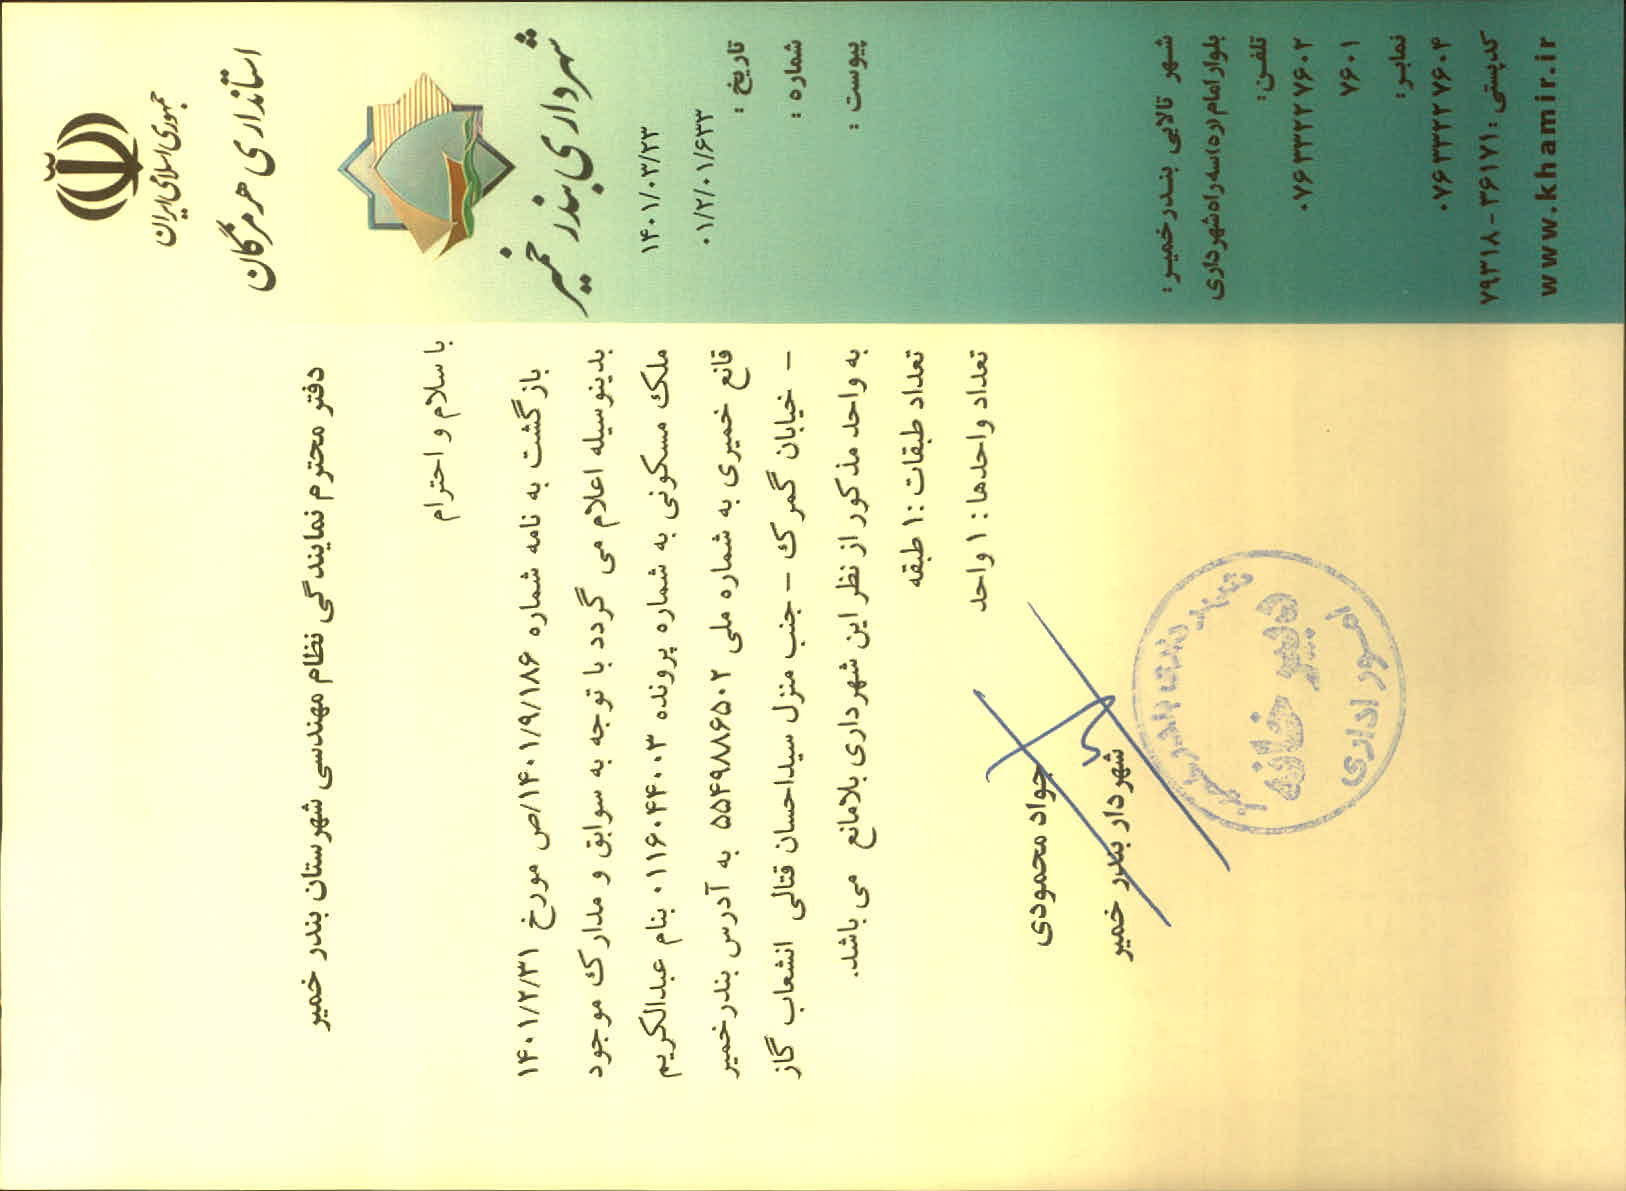 جمهوری اسلامی ایران
استانداری هرمزگان
شهرداری بندر خمیر
تاریخ : ۱۴۰۱/۰۳/۲۳
شماره : ۰۱/۲/۰۱/۶۳۳
پیوست :
دفتر محترم نمایندگی نظام مهندسی شهرستان بندر خمیر
با سلام و احترام
بازگشت به نامه شماره ۱۴۰۱/۹/۱۸۶/ص مورخ ۱۴۰۱/۲/۳۱
بدینوسیله اعلام می گردد با توجه به سوابق و مدارک موجود
ملک مسکونی به شماره پرونده ۰۱۱۶۰۴۴۰۰۳ بنام عبدالکریم
قانع خمیری به شماره ملی ۵۵۴۹۸۸۶۵۰۲ به آدرس بندرخمیر
- خیابان گمرک - جنب منزل سیداحسان قتالی انشعاب گاز
به واحد مذکور از نظر این شهرداری بلامانع می باشد.
تعداد طبقات :۱ طبقه
تعداد واحدها : ۱ واحد
جواد محمودی
شهردار بندر خمیر
دبیرخانه
امور اداری
شهر تالابی بندرخمیر:
بلوار امام (ره) سه راه شهرداری
تلفن:
۰۷۶۳۳۲۲۷۶۰۲
۷۶۰۱
نمابر:
۰۷۶۳۳۲۲۷۶۰۴
کدپستی : ۳۶۱۷۱ - ۷۹۳۱۸
www.khamir.ir